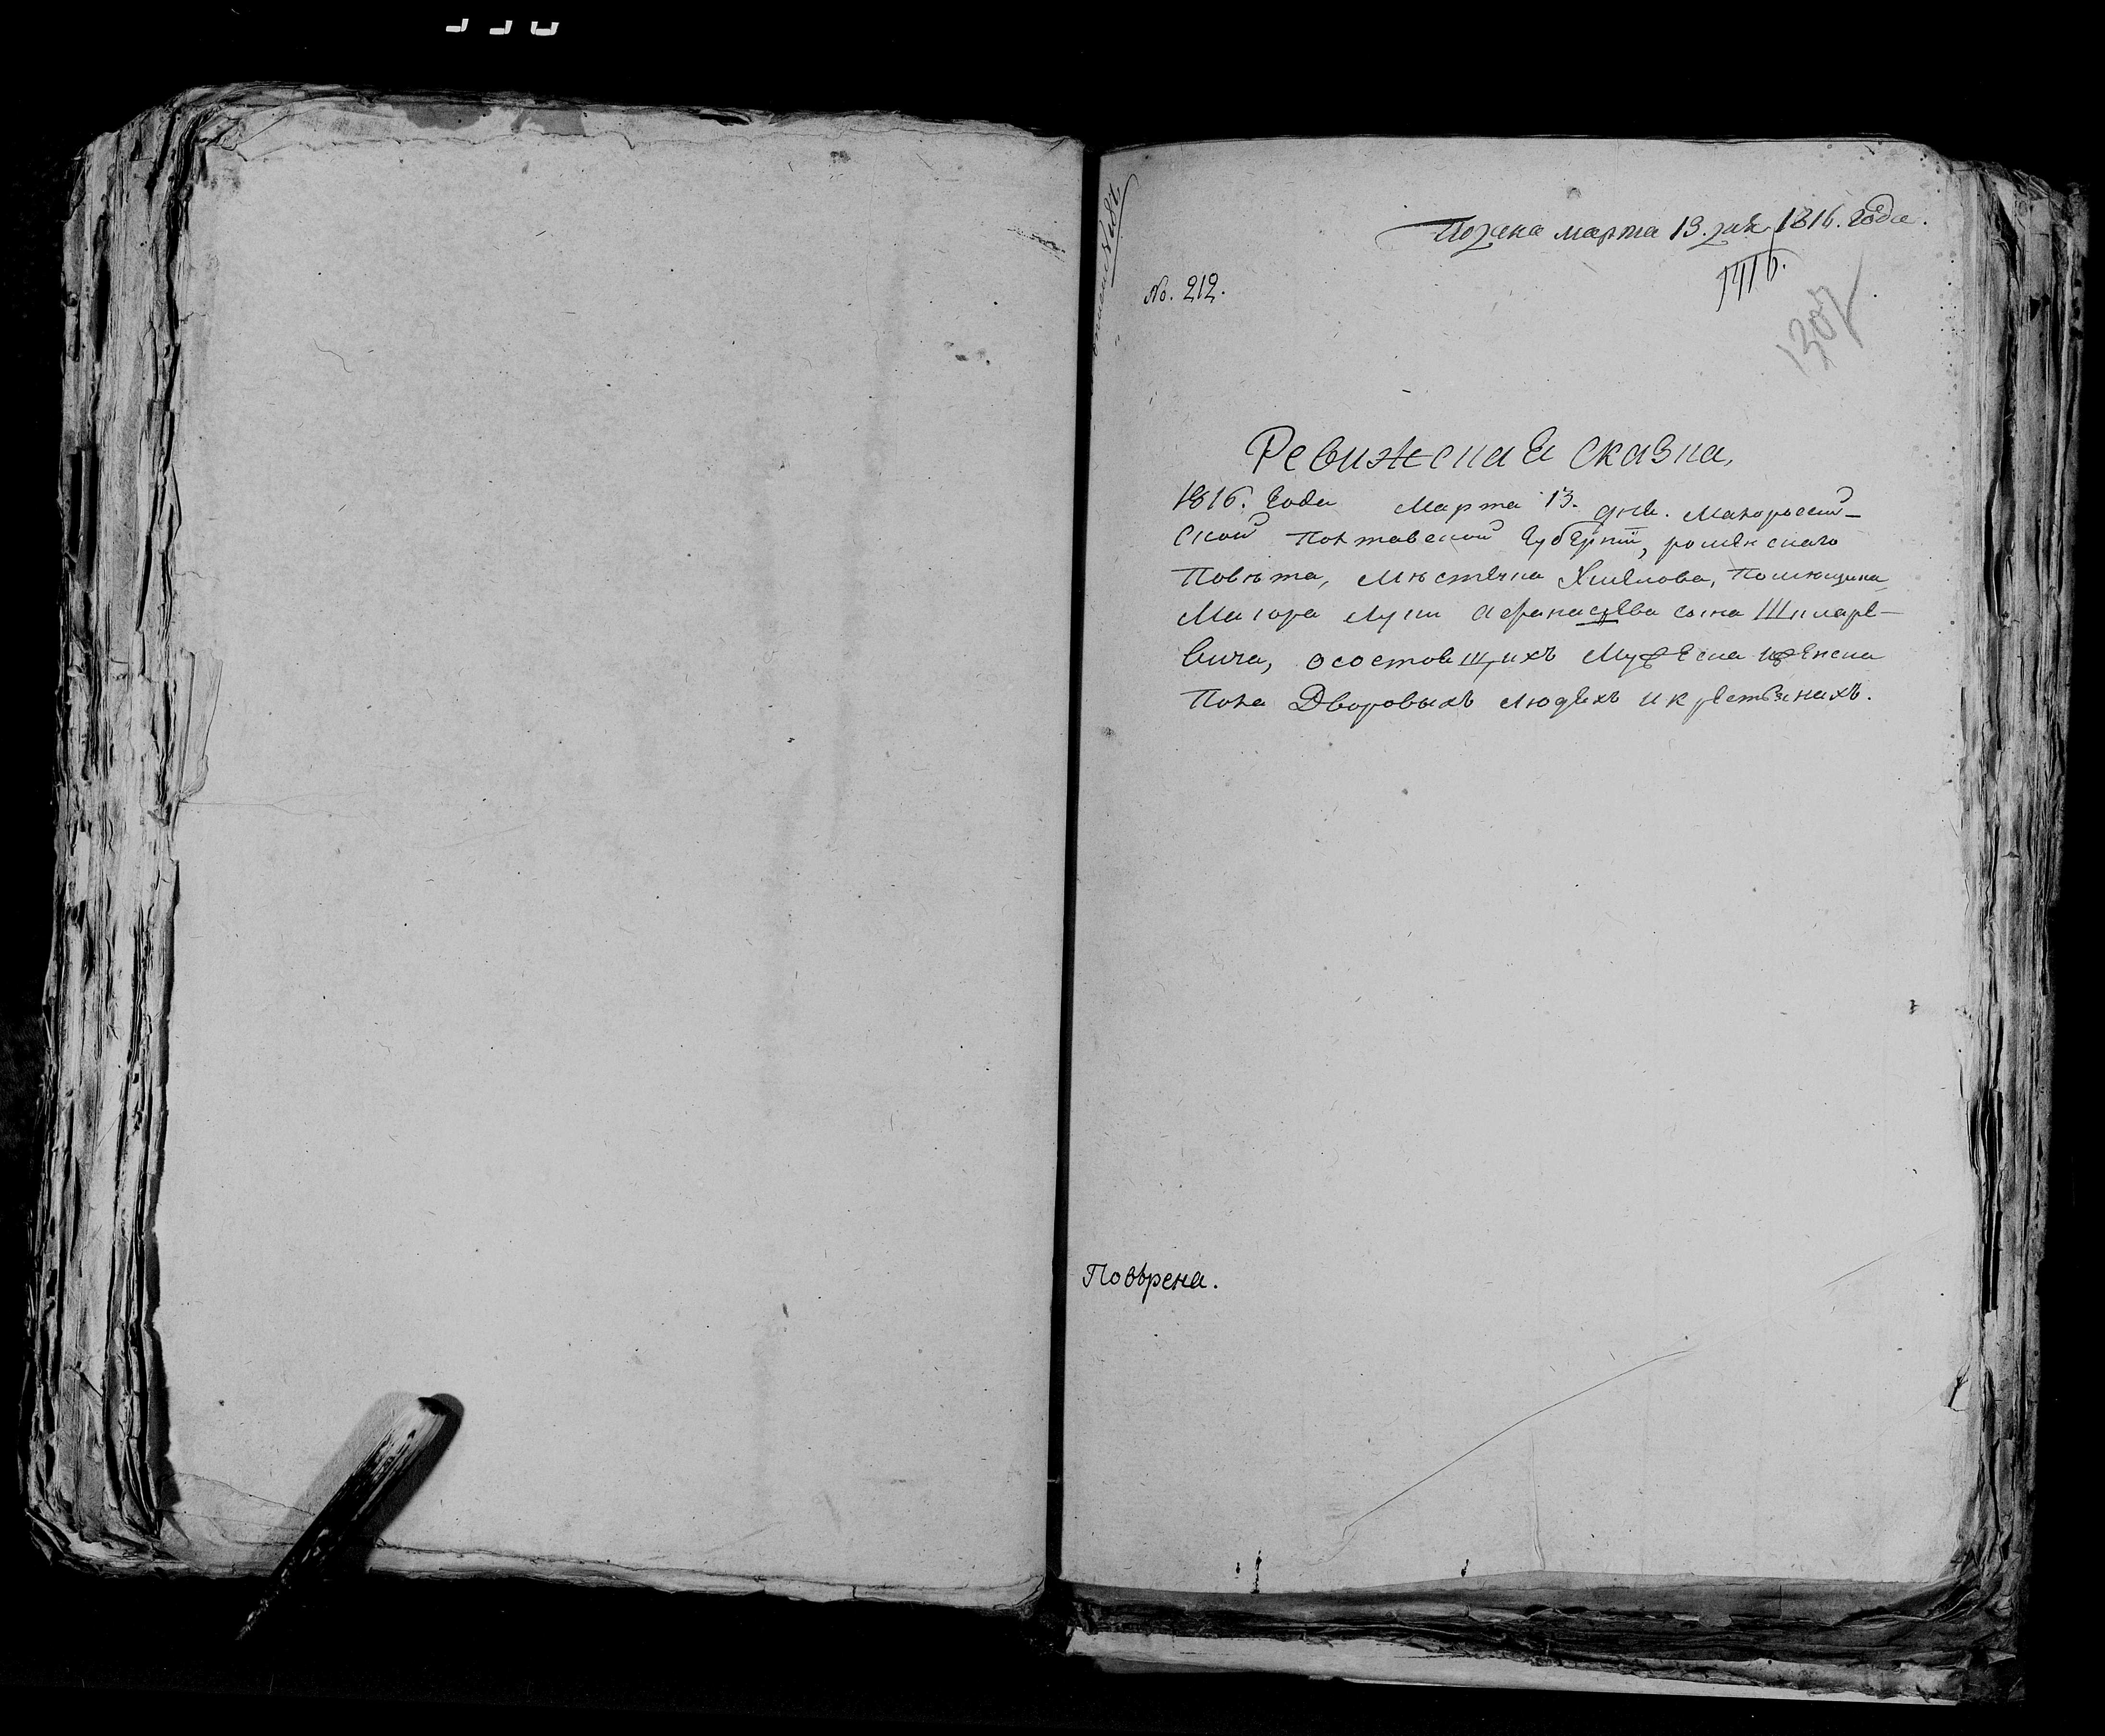 Подана марта 13. дня 1816. года.
No. 212.
1416.
1307
Ревижская сказка,
1816. Года Марта 13. дня. Малоросий-
ской Полтавской Губернїи, роменского
Повѣта, Мѣстечка Хмелова, Помѣщика
Маиора Луки Афанасьева сына Шкларе-
вича, осостоящихъ Мужеска ижѣнска
Пола Дворовыхъ людехъ икрестьянахъ.
Повѣрена.